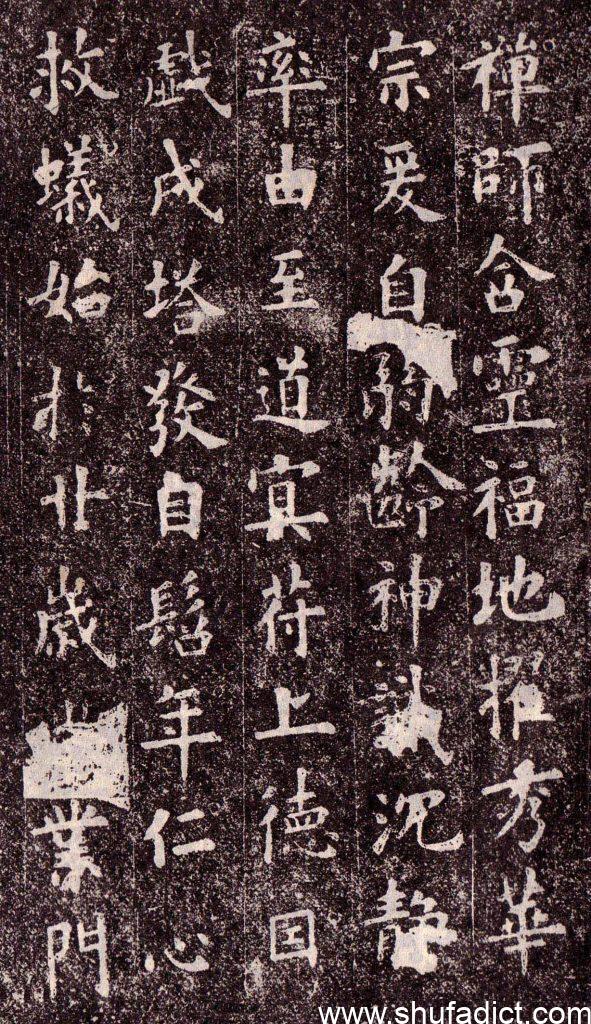 禪師含靈福地擢秀華
宗爰自弱齡神沉靜
率由至道冥符上德因
戲成塔發自髫年仁心
救蟻始於卝歲業門
www.shufadict.com